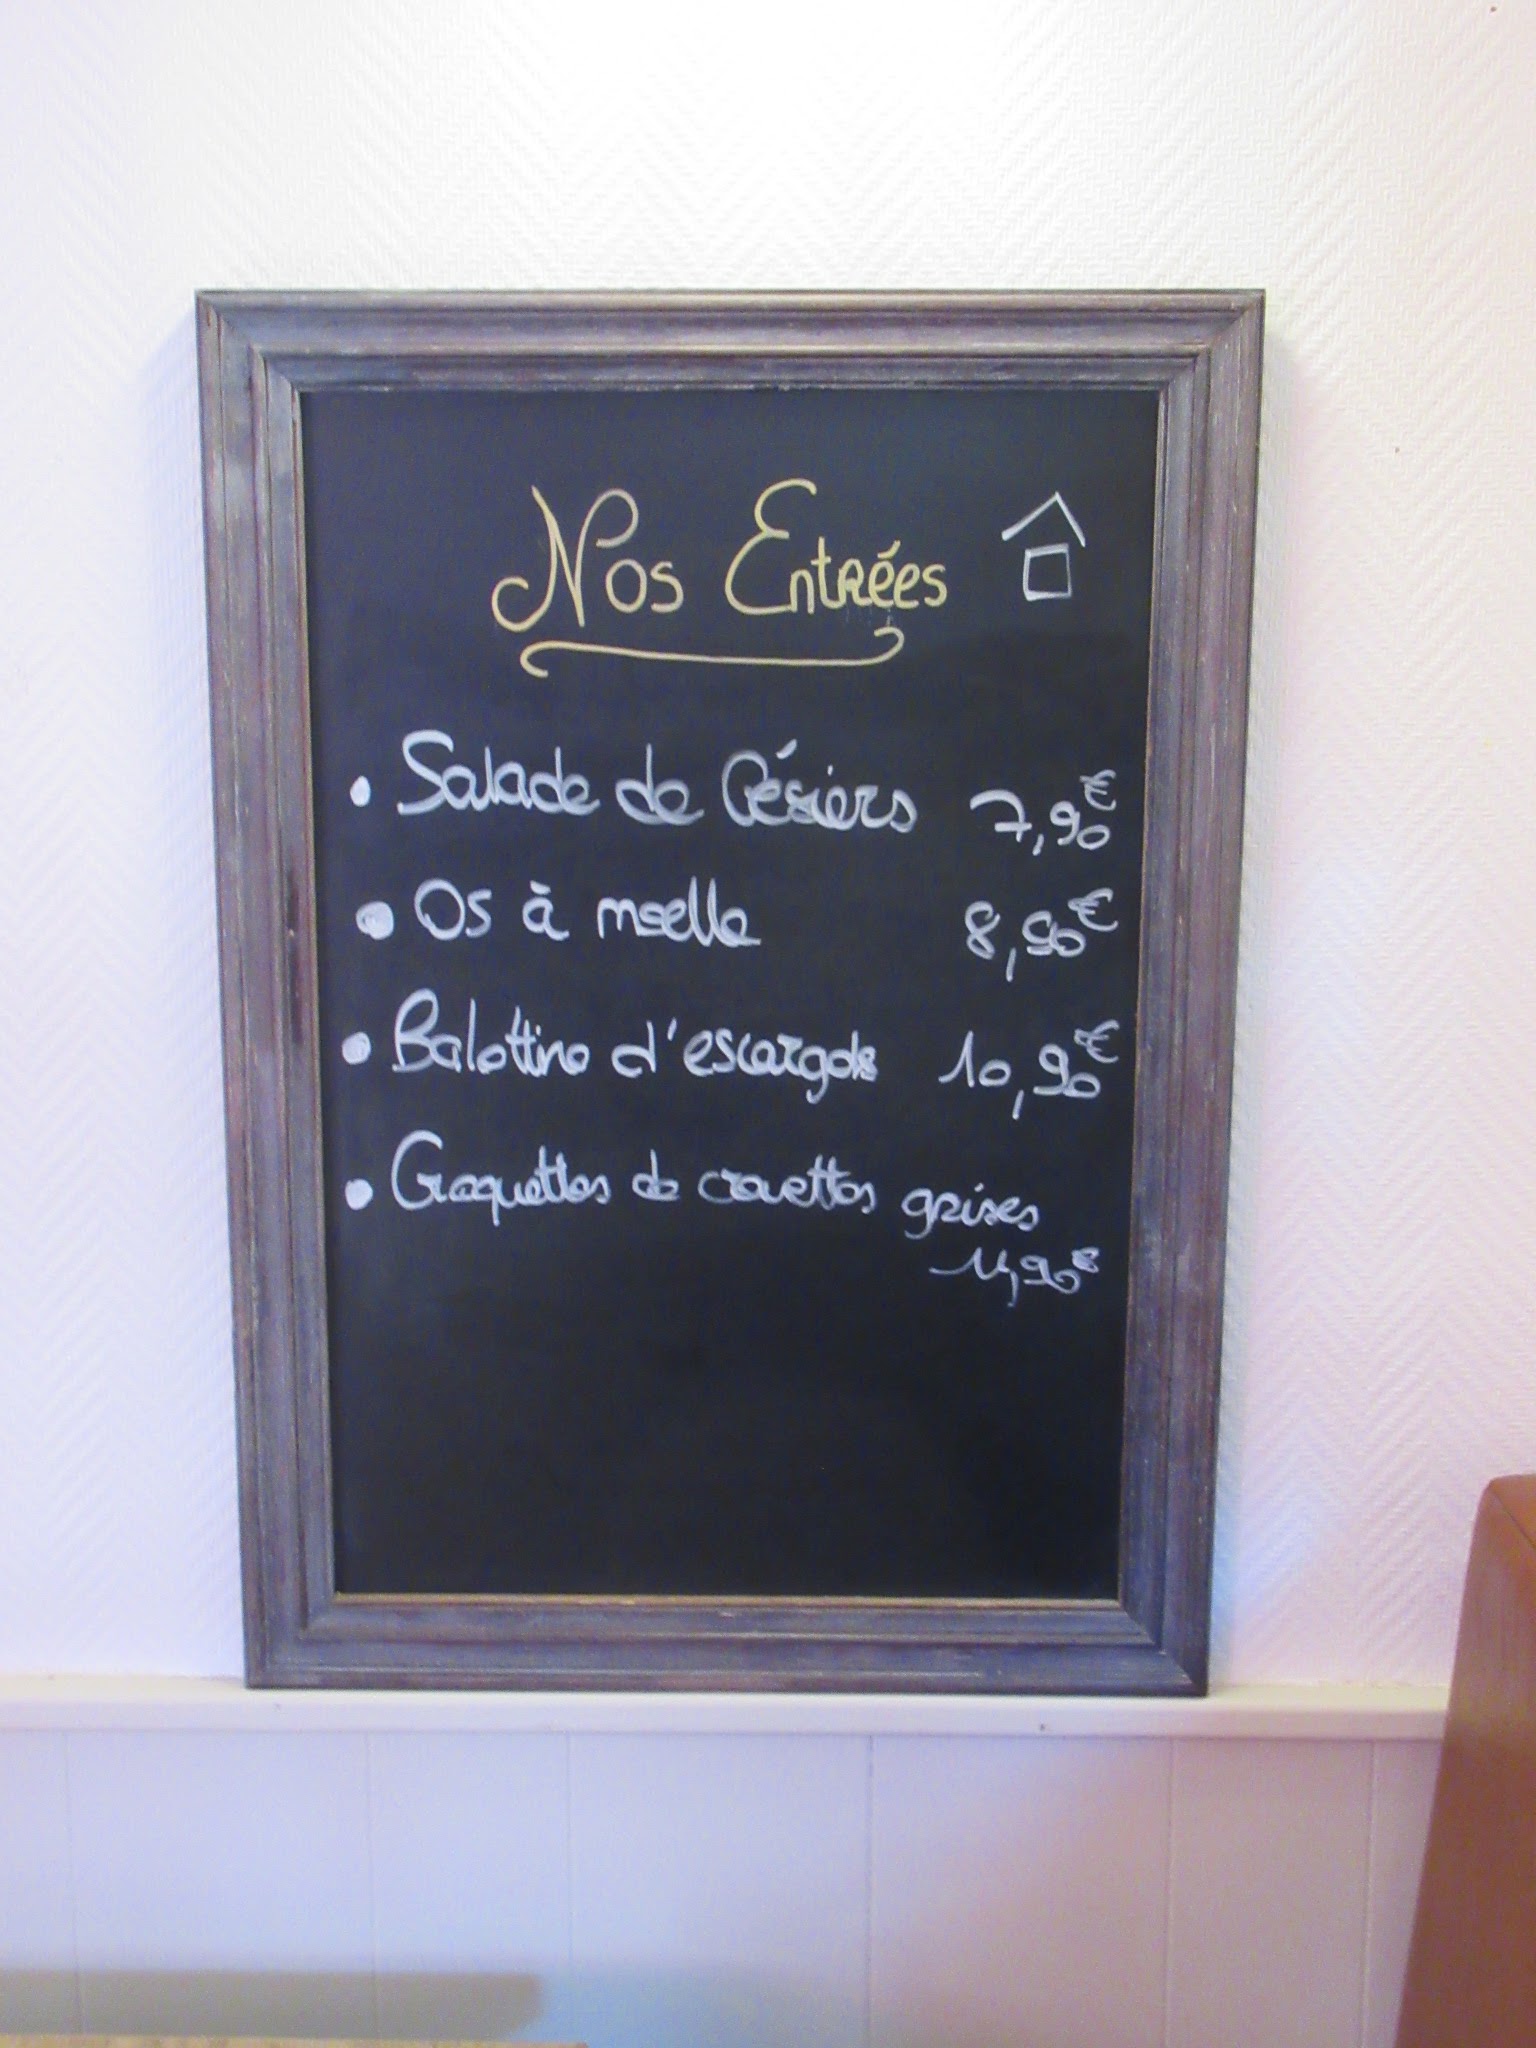 Nos Entrées
• Salade de Gésiers 7,90€
• Os à moelle 8,90€
• Balottine d'escargots 10,90€
• Croquettes de crevettes grises
11,90€